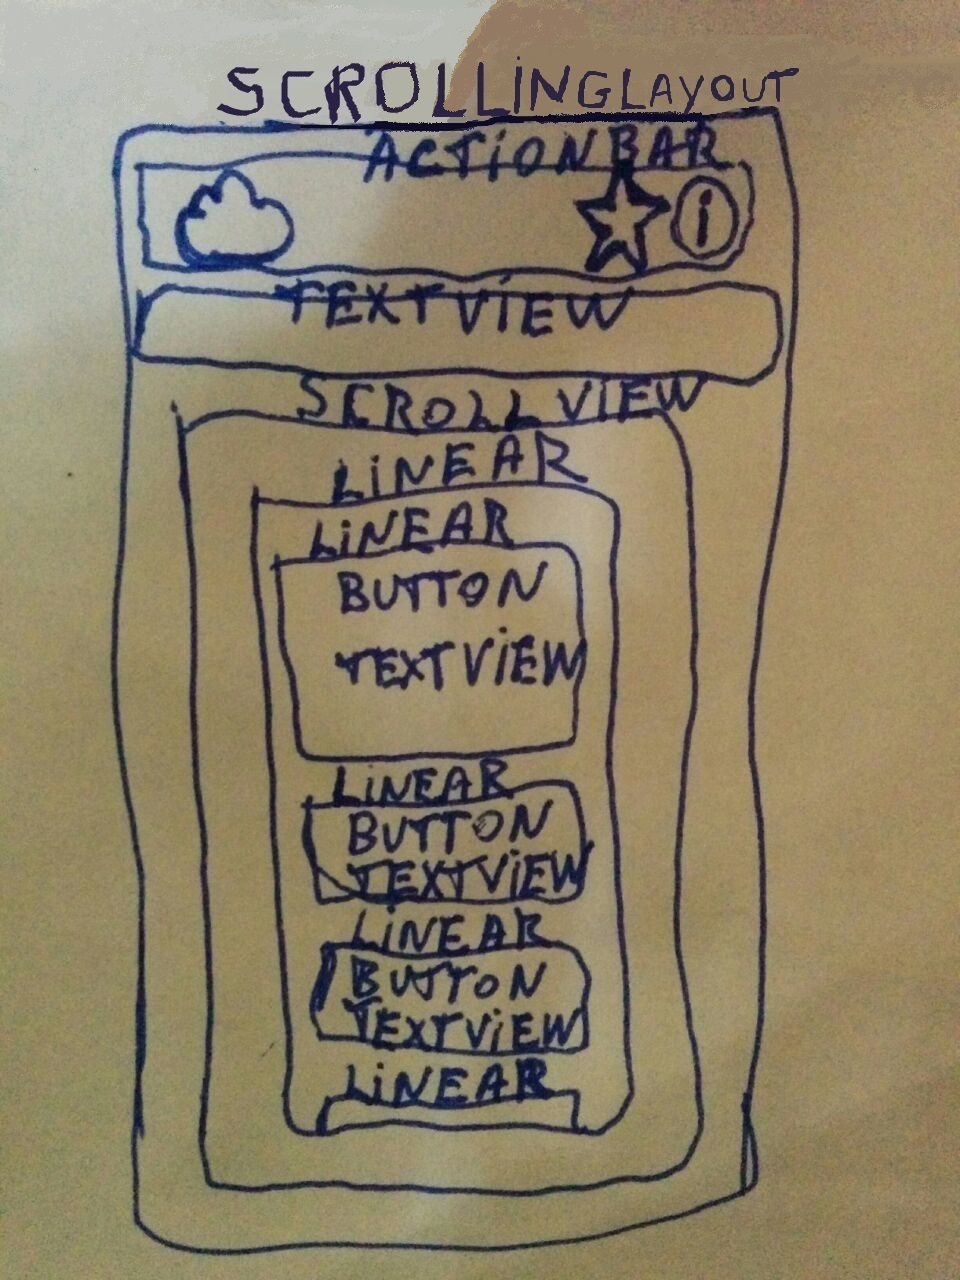 SCROLLiNGLAYOUT
ACTiONBAR
i
TEXTViEW
SCROLLVIEW
LiNEAR
LiNEAR
BUTTON
TEXTViEW
LiNEAR
BUTTON
TEXTViEW
LiNEAR
BUTTON
TEXTViEW
LiNEAR